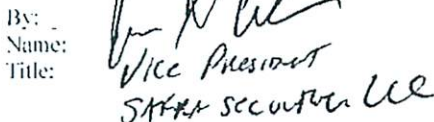 By:
Name:
Title: Vice President
SAFRA SECURITIES LLC